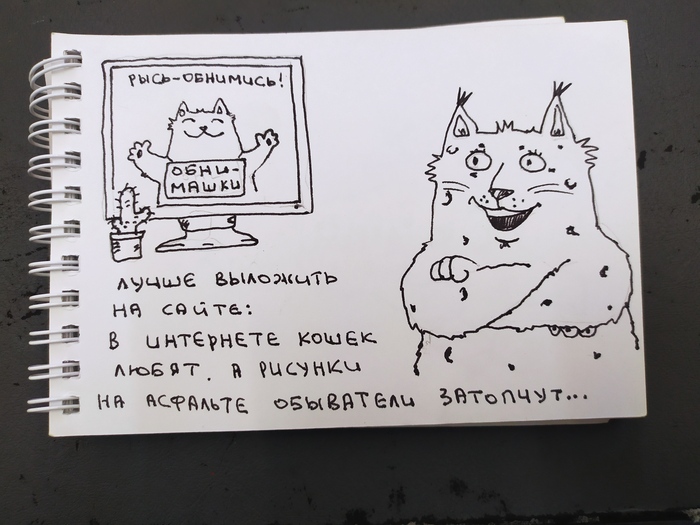 РЫСЬ-ОБНИМИСЬ!
ОБНИ-
МАШКИ
ЛУЧШЕ ВЫЛОЖИТЬ
НА САЙТЕ:
В ИНТЕРНЕТЕ КОШЕК
ЛЮБЯТ. А РИСУНКИ
НА АСФАЛЬТЕ ОБЫВАТЕЛИ ЗАТОПЧУТ...